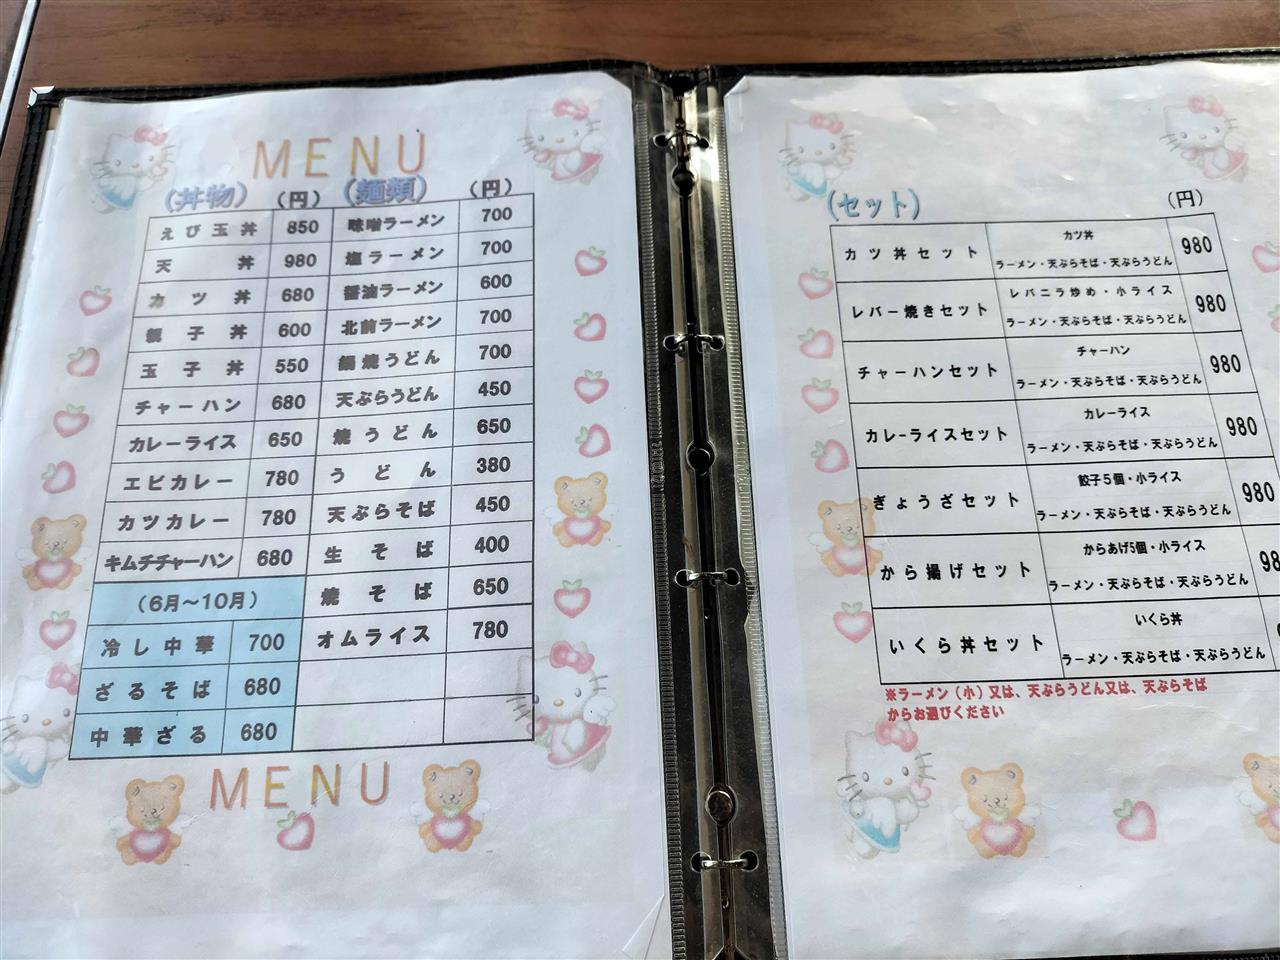 MENU
(丼物) (円) (麺類) (円)
えび玉丼 850 味噌ラーメン 700
天丼 980 塩ラーメン 700
カツ丼 680 醤油ラーメン 600
親子丼 600 北前ラーメン 700
玉子丼 550 鍋焼うどん 700
チャーハン 680 天ぷらうどん 450
カレーライス 650 焼うどん 650
エビカレー 780 うどん 380
カツカレー 780 天ぷらそば 450
キムチチャーハン 680 生そば 400
(6月～10月) 焼そば 650
冷し中華 700 オムライス 780
ざるそば 680
中華ざる 680
MENU
(セット) (円)
カツ丼セット カツ丼 980
ラーメン・天ぷらそば・天ぷらうどん
レバー焼きセット レバニラ炒め・小ライス 980
ラーメン・天ぷらそば・天ぷらうどん
チャーハンセット チャーハン 980
ラーメン・天ぷらそば・天ぷらうどん
カレーライスセット カレーライス 980
ラーメン・天ぷらそば・天ぷらうどん
ぎょうざセット 餃子5個・小ライス 980
ラーメン・天ぷらそば・天ぷらうどん
から揚げセット からあげ5個・小ライス 98
ラーメン・天ぷらそば・天ぷらうどん
いくら丼セット いくら丼
ラーメン・天ぷらそば・天ぷらうどん
※ラーメン（小）又は、天ぷらうどん又は、天ぷらそば
からお選びください